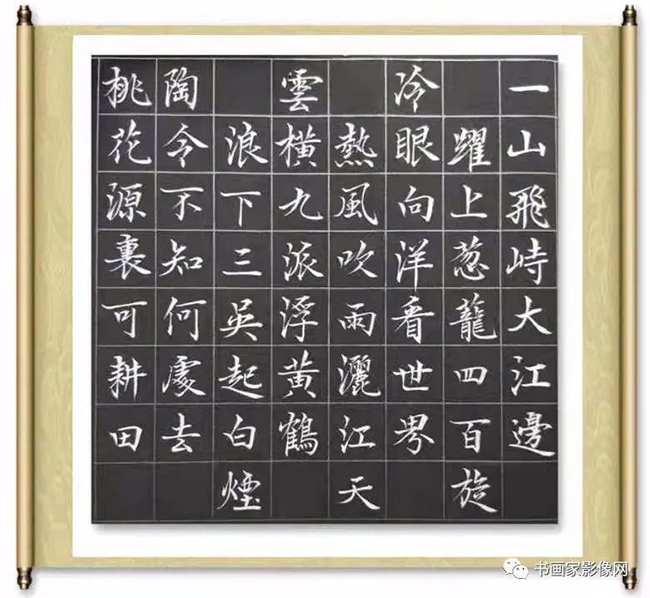 一山飛峙大江邊
躍上葱蘢四百旋
冷眼向洋看世界
熱風吹雨灑江天
雲橫九派浮黃鶴
浪下三吳起白煙
陶令不知何處去
桃花源裏可耕田
书画家影像网